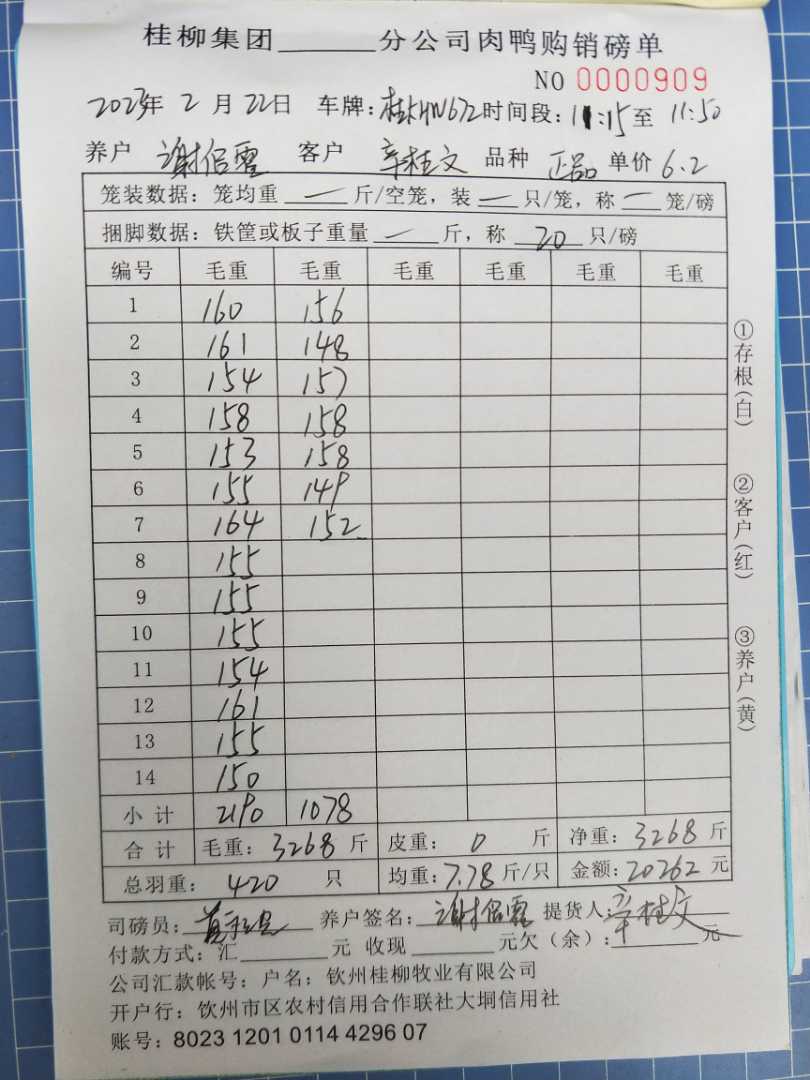 桂柳集团______分公司肉鸭购销磅单
NO 0000909
2023年 2 月 22日 车牌:桂HW672 时间段:11:15至 11:50
养户 谢侣霞 客户 辛桂文 品种 正品 单价 6.2
笼装数据:笼均重 — 斤/空笼,装 — 只/笼,称 — 笼/磅
捆脚数据:铁筐或板子重量 — 斤,称 20 只/磅
编号 毛重 毛重 毛重 毛重 毛重 毛重
1 160 156
2 161 148
3 154 157
4 158 158
5 153 158
6 155 149
7 164 152
8 155
9 155
10 155
11 154
12 161
13 155
14 150
小 计 2190 1078
合 计 毛重: 3268 斤 皮重: 0 斤 净重: 3268 斤
总羽重: 420 只 均重: 7.78 斤/只 金额: 20262 元
司磅员: 养户签名: 谢侣霞 提货人: 辛桂文
付款方式:汇______元 收现______元欠(余):______元
公司汇款帐号:户名:钦州桂柳牧业有限公司
开户行:钦州市区农村信用合作联社大垌信用社
账号:8023 1201 0114 4296 07
①存根(白)
②客户(红)
③养户(黄)